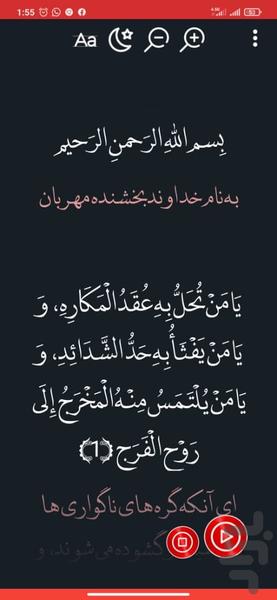 1:55
Aa
بِسمِ اللهِ الرَحمنِ الرَحیم
به نام خداوند بخشنده مهربان
یَا مَنْ تُحَلُّ بِهِ عُقَدُ الْمَكَارِهِ، وَ
یَا مَنْ یَفْثَأُ بِهِ حَدُّ الشَّدَائِدِ، وَ
یَا مَنْ یُلْتَمَسُ مِنْهُ الْمَخْرَجُ إِلَى
رَوْحِ الْفَرَجِ (1)
ای آنکه گره‌های ناگواری‌ها
گشوده می‌شوند، و